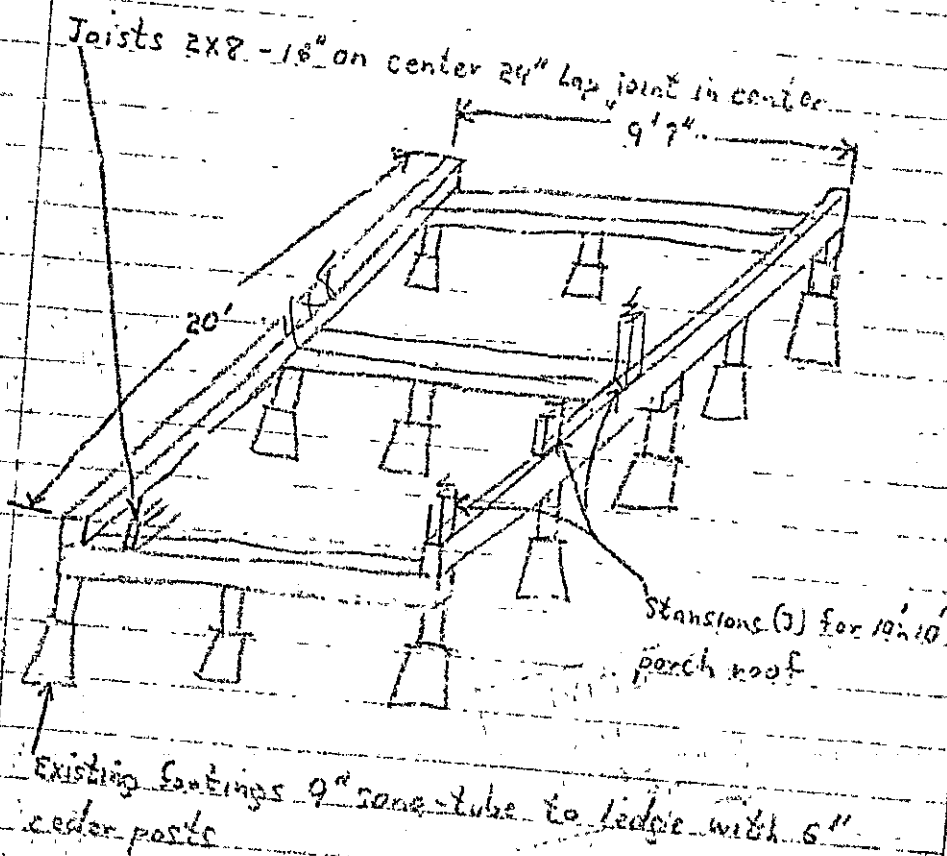 Joists 2X8 - 18" on center 24" Lap joint in center
9'7"
20'
Stansions (3) for 10'x10'
porch roof
Existing footings 9" sone-tube to ledge with 6"
ceder posts